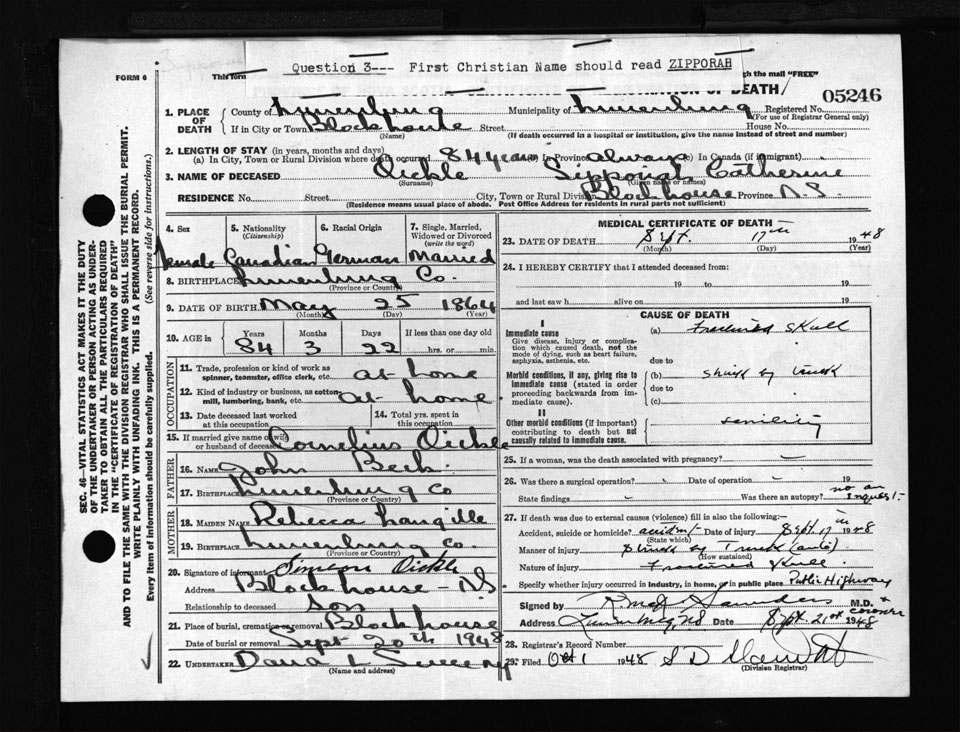 Question 3--- First Christian Name should read ZIPPORAH
FORM 6
This form
gh the mail "FREE"
OF DEATH
05246
1. PLACE OF DEATH
County of Lunenburg Municipality of Lunenburg Registered No.
(For use of Registrar General only)
If in City or Town Blockhouse Street House No.
(Name) (If death occurred in a hospital or institution, give the name instead of street and number)
2. LENGTH OF STAY (in years, months and days)
(a) In City, Town or Rural Division where death occurred 84 years (b) In Province always (c) In Canada (if immigrant)
3. NAME OF DECEASED Oickle Sipporiah Catherine
(Surname) (Given name or names)
RESIDENCE No. Street City, Town or Rural Division Blockhouse Province N.S.
(Residence means usual place of abode. Post Office Address for residents in rural parts not sufficient)
4. Sex 5. Nationality (Citizenship) 6. Racial Origin 7. Single, Married, Widowed or Divorced (write the word)
Female Canadian German Married
8. BIRTHPLACE Lunenburg Co.
(Province or Country)
9. DATE OF BIRTH May 25 1864
(Month) (Day) (Year)
10. AGE in Years Months Days If less than one day old
84 3 22 hrs. or min.
OCCUPATION
11. Trade, profession or kind of work as spinner, teamster, office clerk, etc. at home
12. Kind of industry or business, as cotton mill, lumbering, bank, etc. at home
13. Date deceased last worked at this occupation 14. Total yrs. spent in this occupation
15. If married give name of wife or husband of deceased Cornelius Oickle
FATHER
16. NAME John Beck
17. BIRTHPLACE Lunenburg Co
(Province or Country)
MOTHER
18. MAIDEN NAME Rebecca Langille
19. BIRTHPLACE Lunenburg Co.
(Province or Country)
20. Signature of informant Simeon Oickle
Address Blockhouse - N.S
Relationship to deceased Son
21. Place of burial, cremation or removal Blockhouse
Date of burial or removal Sept 20th 1948
22. UNDERTAKER Dana L Sweeny
(Name and address)
MEDICAL CERTIFICATE OF DEATH
23. DATE OF DEATH Sept. 17th 1948
(Month) (Day) (Year)
24. I HEREBY CERTIFY that I attended deceased from:
19 to 19
and last saw h alive on 19
CAUSE OF DEATH
I
Immediate cause (a) Fractured Skull
Give disease, injury or complication which caused death, not the mode of dying, such as heart failure, asphyxia, asthenia, etc.
due to
Morbid conditions, if any, giving rise to immediate cause (stated in order proceeding backwards from immediate cause).
(b) Struck by truck
due to
(c)
II
Other morbid conditions (if important) contributing to death but not causally related to immediate cause. senility
25. If a woman, was the death associated with pregnancy?
26. Was there a surgical operation? Date of operation 19
State findings Was there an autopsy? no an Inquest
27. If death was due to external causes (violence) fill in also the following:—
Accident, suicide or homicide? accident Date of injury Sept. 17th 1948
(State which)
Manner of injury Struck by Truck (auto)
(How sustained)
Nature of injury Fractured skull
Specify whether injury occurred in industry, in home, or in public place Public Highway
Signed by Saunders M.D. & coroner
Address Lunenburg, NS Date Sept. 21st 1948
28. Registrar's Record Number
29. Filed Oct 1 1948 S D
(Division Registrar)
SEC. 46—VITAL STATISTICS ACT MAKES IT THE DUTY
OF THE UNDERTAKER OR PERSON ACTING AS UNDERTAKER
TO OBTAIN ALL THE PARTICULARS REQUIRED
IN THE "CERTIFICATE OF REGISTRATION OF DEATH"
AND TO FILE THE SAME WITH THE DIVISION REGISTRAR WHO SHALL ISSUE THE BURIAL PERMIT.
WRITE PLAINLY WITH UNFADING INK. THIS IS A PERMANENT RECORD.
Every item of information should be carefully supplied. (See reverse side for instructions.)